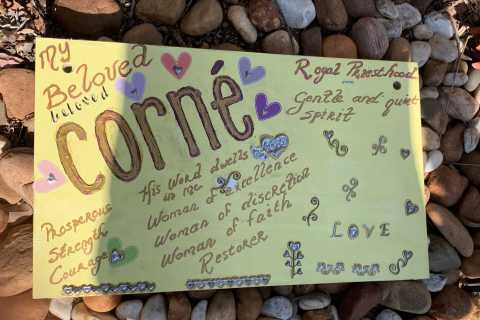 My
Beloved
beloved
Corné
Royal Priesthood
Gentle and quiet
spirit
His word dwells
in me
Woman of excellence
Woman of discretion
Woman of faith
Restorer
Prosperous
Strength
Courage
LOVE